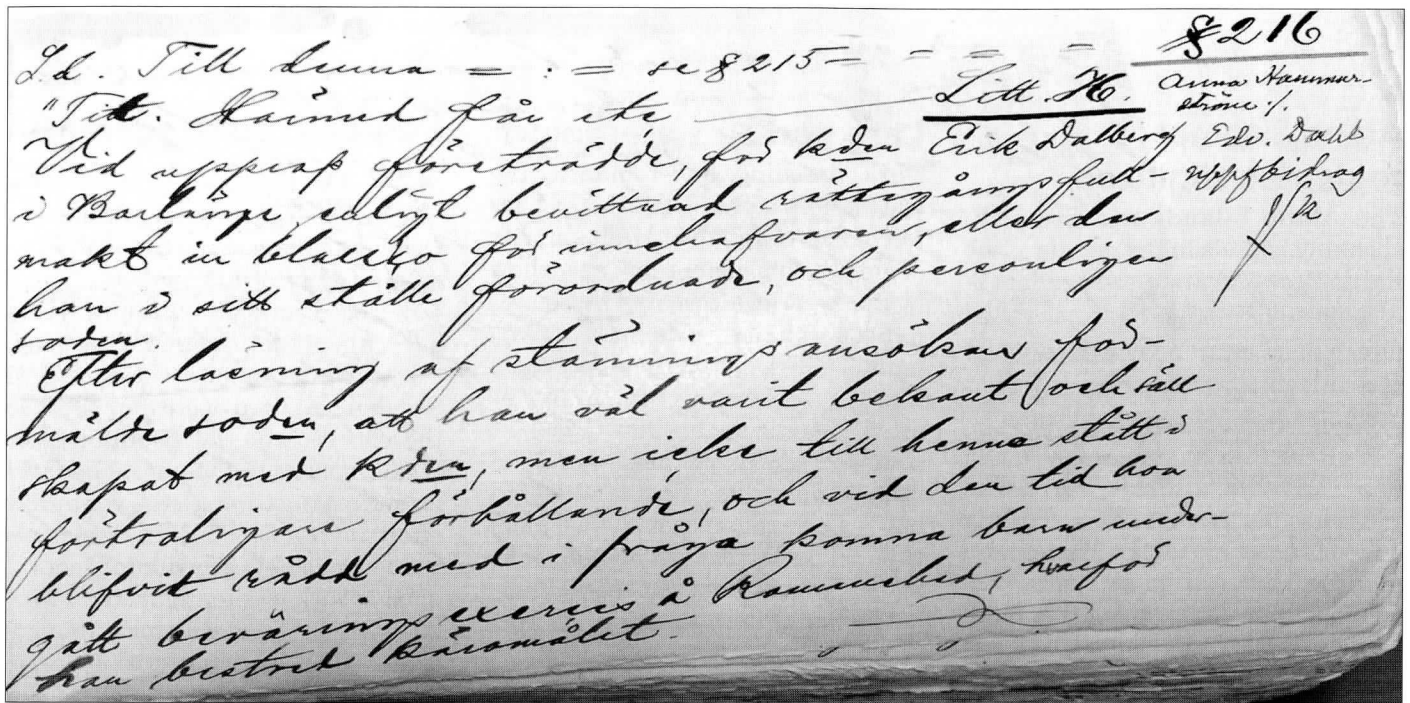 § 216
S.d. Till denna = : = se § 215 = = = =
Litt. H.
Anna Hammar-
ström ./.
Edv. Dahl
uppfbidrag
"Tit. Härmed får etc
Vid upprop företrädde, för kden Erik Dalberg
i Borlänge enligt bevittnad rättegångsfull-
makt in blanco för innehafvaren, eller den
han i sitt ställe förordnade, och personligen
svden.
Efter läsning af stämningsansökan för-
mälde svden, att han väl varit bekant och säll
skapat med kden, men icke till henne stått i
förtroligare förhållande, och vid den tid hon
blifvit rådd med i fråga komna barn under-
gått beväringsexercis å Rommehed, hvarför
han bestred käromålet.